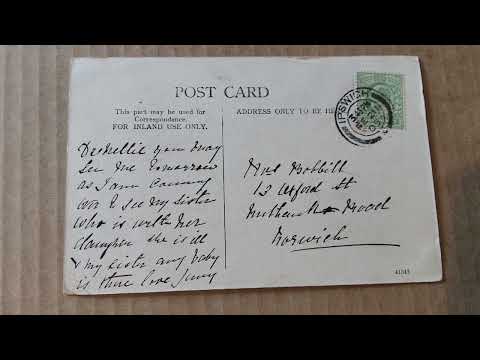 POST CARD
This part may be used for
Correspondence.
FOR INLAND USE ONLY.
ADDRESS ONLY TO BE HE
IPSWICH
Dr Nellie you may
See Me tomorrow
as I am coming
to see my sister
Who is with her
she is ill
& my sister any baby
is there love Jenny
Mrs Bobbitt
13 Oxford St
Road
Norwich
41343